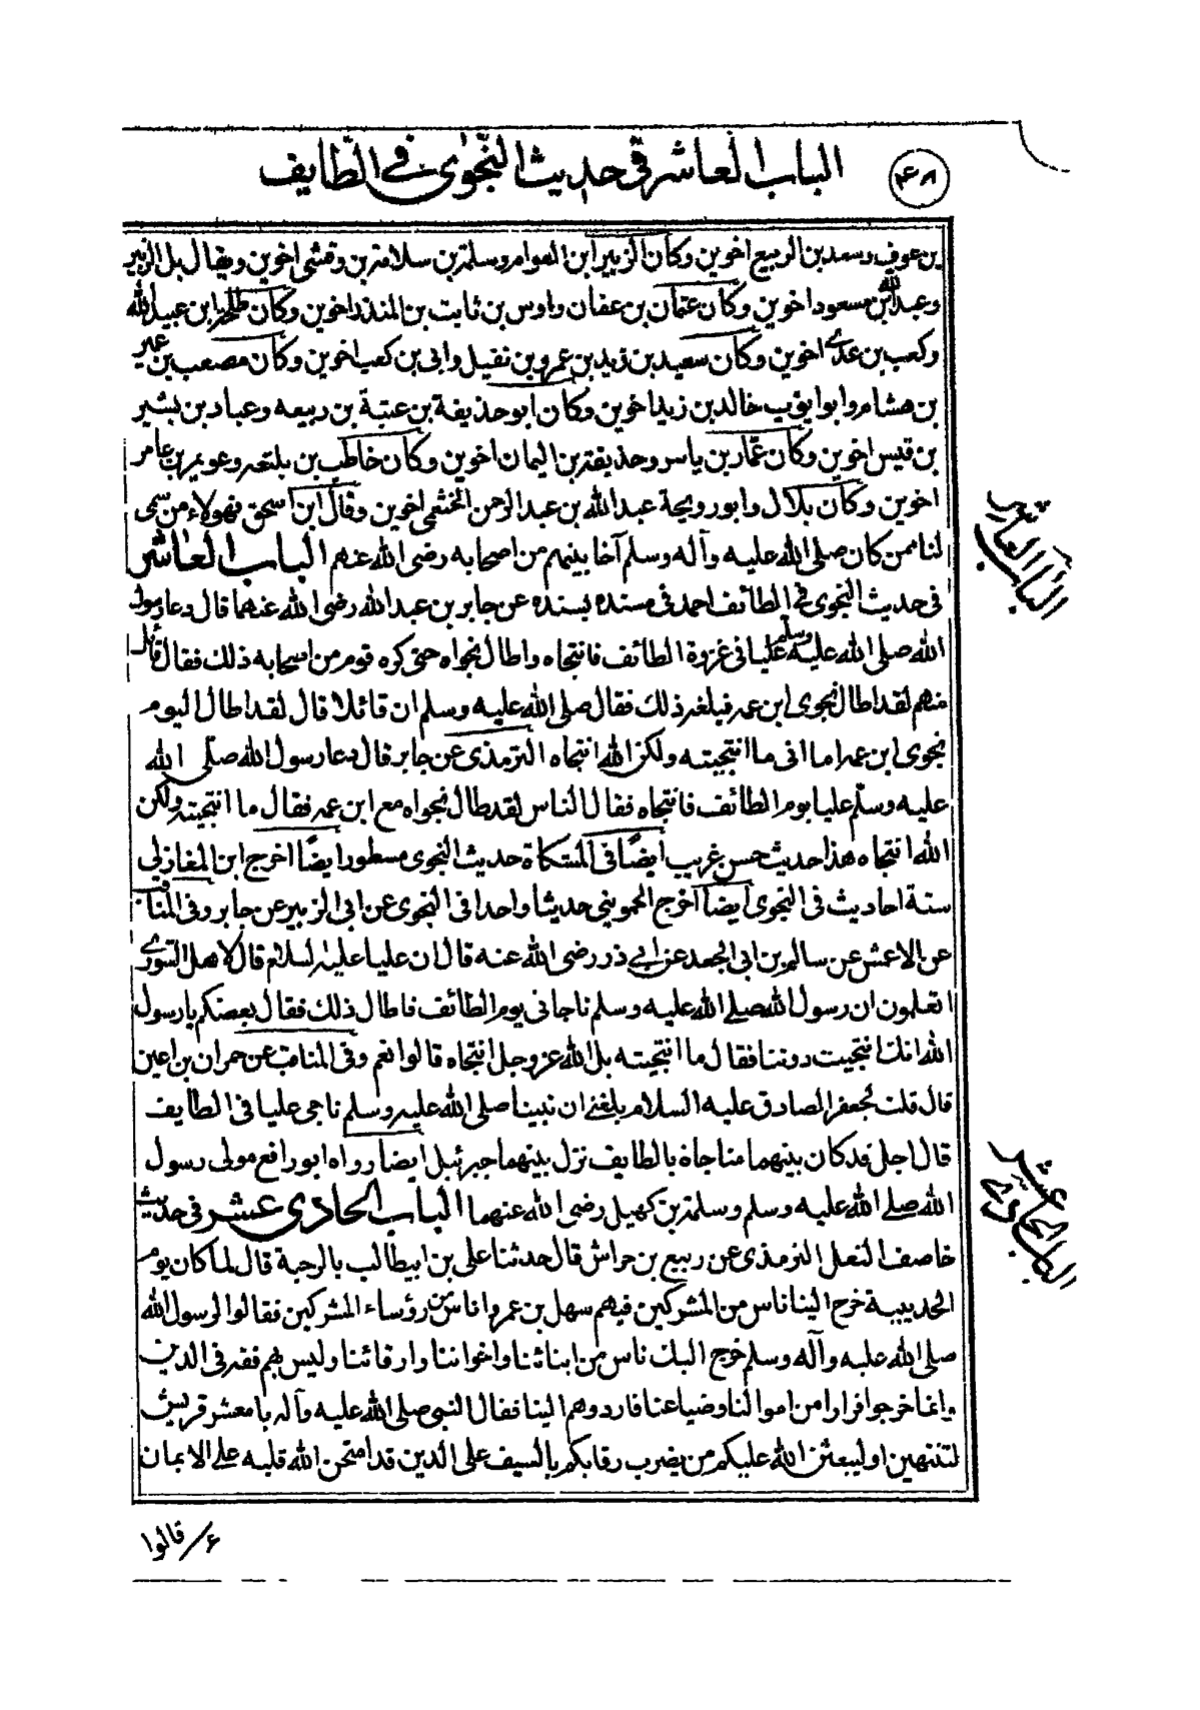 الباب العاشر فی حدیث النجوی فے الطایف
۴۶۸
ابن عوف وسعد بن الربیع اخوین وکان الزبیر ابن العوام وسلمة بن سلامة بن وقشی اخوین ویقال بل الزبیر
وعبد الله بن مسعود اخوین وکان عثمان بن عفان واوس بن ثابت بن المنذر اخوین وکان طلحه ابن عبید الله
وکعب بن عدے اخوین وکان سعید بن زید بن عمرو بن نفیل وابی بن کعب اخوین وکان مصعب بن عمیر
بن هشام وابو ایوب خالد بن زید اخوین وکان ابو حذیفة بن عتبة بن ربیعه وعباد بن بشیر
بن قیس اخوین وکان عمّار بن یاسر وحذیفة بن الیمان اخوین وکان خاطب بن بلتعه وعویمر بن عامر
اخوین وکان بلال وابو رویحة عبد الله بن عبد الرحمن الخشمی اخوین وقال ابن اسحق فهولاء من سمی
لنا ممن کان صلی الله علیه وآله وسلم آخا بینهم من اصحابه رضی الله عنهم الباب العاشر
فی حدیث النجوی فی الطائف احمد فی مسنده بسنده عن جابر بن عبد الله رضی الله عنهما قال دعا رسول
الله صلی الله علیه وسلم علیا فی غزوة الطائف فانتجاه واطال نجواه حتی کره قوم من اصحابه ذلک فقال قائل
منهم لقد اطال نجوی ابن عمه فبلغه ذلک فقال صلی الله علیه وسلم ان قائلا قال لقد اطال الیوم
نجوی ابن عمه اما انی ما انتجیته ولکن الله انتجاه الترمذی عن جابر قال دعا رسول الله صلّی الله
علیه وسلّم علیا یوم الطائف فانتجاه فقال الناس لقد طال نجواه مع ابن عمه فقال ما انتجیته ولکن
الله انتجاه هذا حدیث حسن غریب ایضًا فی المشکاة حدیث النجوی مسطور ایضًا اخرج ابن المغازلی
ستة احادیث فی النجوی ایضًا اخرج الحموینی حدیثا واحدا فی النجوی عن ابی الزبیر عن جابر وفی المناقب
عن الاعمش عن سالم بن ابی الجعد عن ابی ذر رضی الله عنه قال ان علیا علیه السلام قال لاهل الشورے
اتعلمون ان رسول الله صلے الله علیه وسلم ناجانی یوم الطائف فاطال ذلک فقال بعضکم یا رسول
الله انک انتجیت دوننا فقال ما انتجیته بل الله عز وجل انتجاه قالوا نعم وفی المناقب عن حمران بن اعین
قال قلت لجعفر الصادق علیه السلام بلغنے ان نبینا صلی الله علیه وسلم ناجی علیا فی الطایف
قال اجل قد کان بینهما مناجاة بالطایف نزل بینهما جبرئیل ایضا رواه ابو رافع مولی رسول
الله صلے الله علیه وسلم وسلمة بن کهیل رضی الله عنهما الباب الحادی عشر فی حدیث
خاصف النعل الترمذی عن ربیع بن حراش قال حدثنا علی بن ابیطالب بالرحبة قال لما کان یوم
الحدیبیة خرج الینا ناس من المشرکین فیهم سهل بن عمر واناس من رؤساء المشرکین فقالوا لرسول الله
صلی الله علیه وآله وسلم خرج الیک ناس من ابنائنا واخواننا وارقائنا ولیس بهم فقه فی الدین
وانما خرجوا فرارا من اموالنا وضیاعنا فارددهم الینا فقال النبی صلی الله علیه وآله یا معشر قریش
لتنتهین او لیبعثن الله علیکم من یضرب رقابکم بالسیف علی الدین قد امتحن الله قلبه علے الایمان
الباب العاشر
الباب الحادے عشر
۶/قالوا